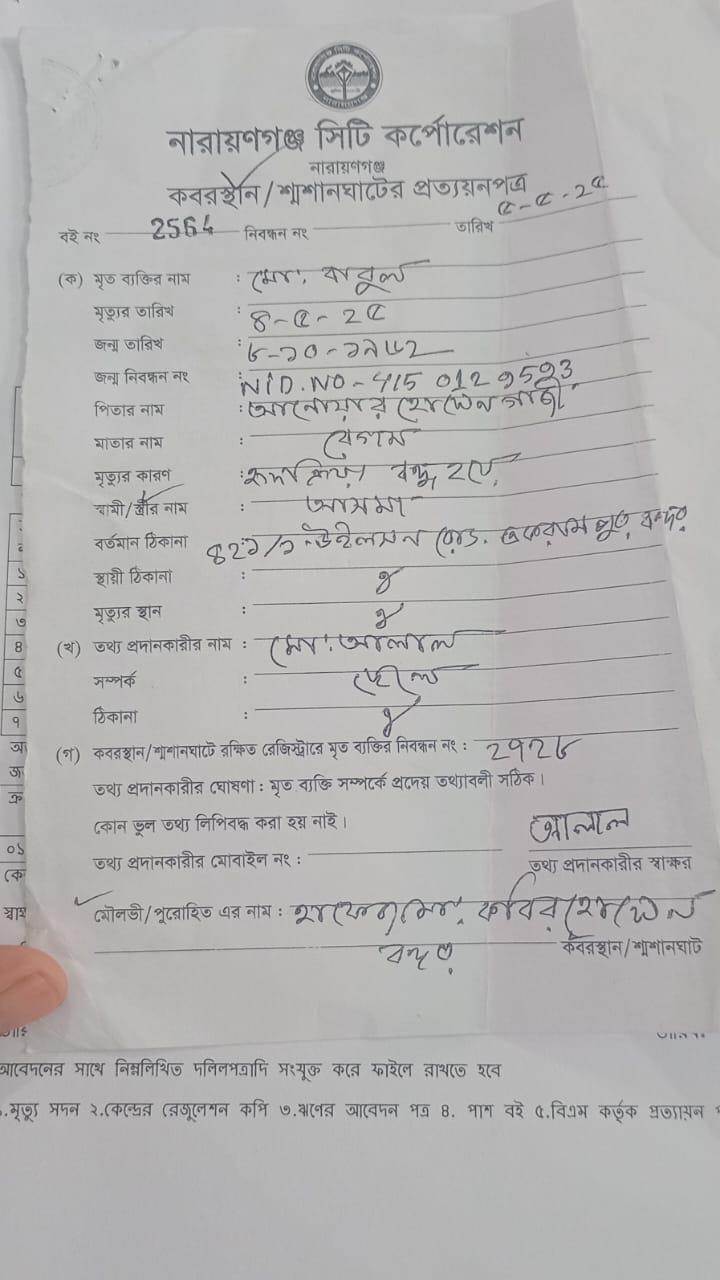 নারায়ণগঞ্জ সিটি কর্পোরেশন
নারায়ণগঞ্জ
কবরস্থান/শ্মশানঘাটের প্রত্যয়নপত্র
বই নং 2564 নিবন্ধন নং তারিখ ৫-৫-২৫
(ক) মৃত ব্যক্তির নাম : মো: বাবুল
মৃত্যুর তারিখ : ৪-৫-২৫
জন্ম তারিখ : ৮-১০-১৯৬২
জন্ম নিবন্ধন নং : NID.NO-415 0129593
পিতার নাম : আনোয়ার হোসেন গাজী
মাতার নাম : বেগম
মৃত্যুর কারণ : হৃদক্রিয়া বন্ধ হয়ে
স্বামী/স্ত্রীর নাম : আসমা
বর্তমান ঠিকানা : ৪২১/১ উইলসন রোড, একরামপুর, বন্দর
স্থায়ী ঠিকানা : ঐ
মৃত্যুর স্থান : ঐ
(খ) তথ্য প্রদানকারীর নাম : মো: আলাল
সম্পর্ক : ছেলে
ঠিকানা : ঐ
(গ) কবরস্থান/শ্মশানঘাটে রক্ষিত রেজিস্ট্রারে মৃত ব্যক্তির নিবন্ধন নং : ২৭২৮
তথ্য প্রদানকারীর ঘোষণা : মৃত ব্যক্তি সম্পর্কে প্রদেয় তথ্যাবলী সঠিক।
কোন ভুল তথ্য লিপিবদ্ধ করা হয় নাই।
আলাল
তথ্য প্রদানকারীর মোবাইল নং : তথ্য প্রদানকারীর স্বাক্ষর
মৌলভী/পুরোহিত এর নাম : হাফেজ মো: কবির হোসেন
বন্দর কবরস্থান/শ্মশানঘাট
আবেদনের সাথে নিম্নলিখিত দলিলপত্রাদি সংযুক্ত করে ফাইলে রাখতে হবে
১.মৃত্যু সদন ২.কেন্দ্রের রেজুলেশন কপি ৩.ঋনের আবেদন পত্র ৪. পাশ বই ৫.বিএম কর্তৃক প্রত্যায়ন